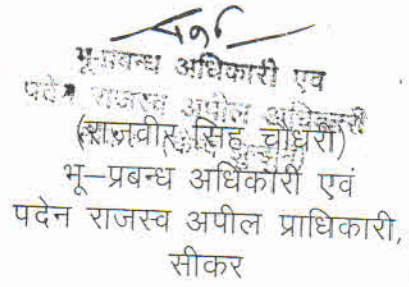 भू-प्रबन्ध अधिकारी एव
पदेन राजस्व अपील अधिकारी
(राजवीर सिंह चौधरी)
भू–प्रबन्ध अधिकारी एवं
पदेन राजस्व अपील प्राधिकारी,
सीकर